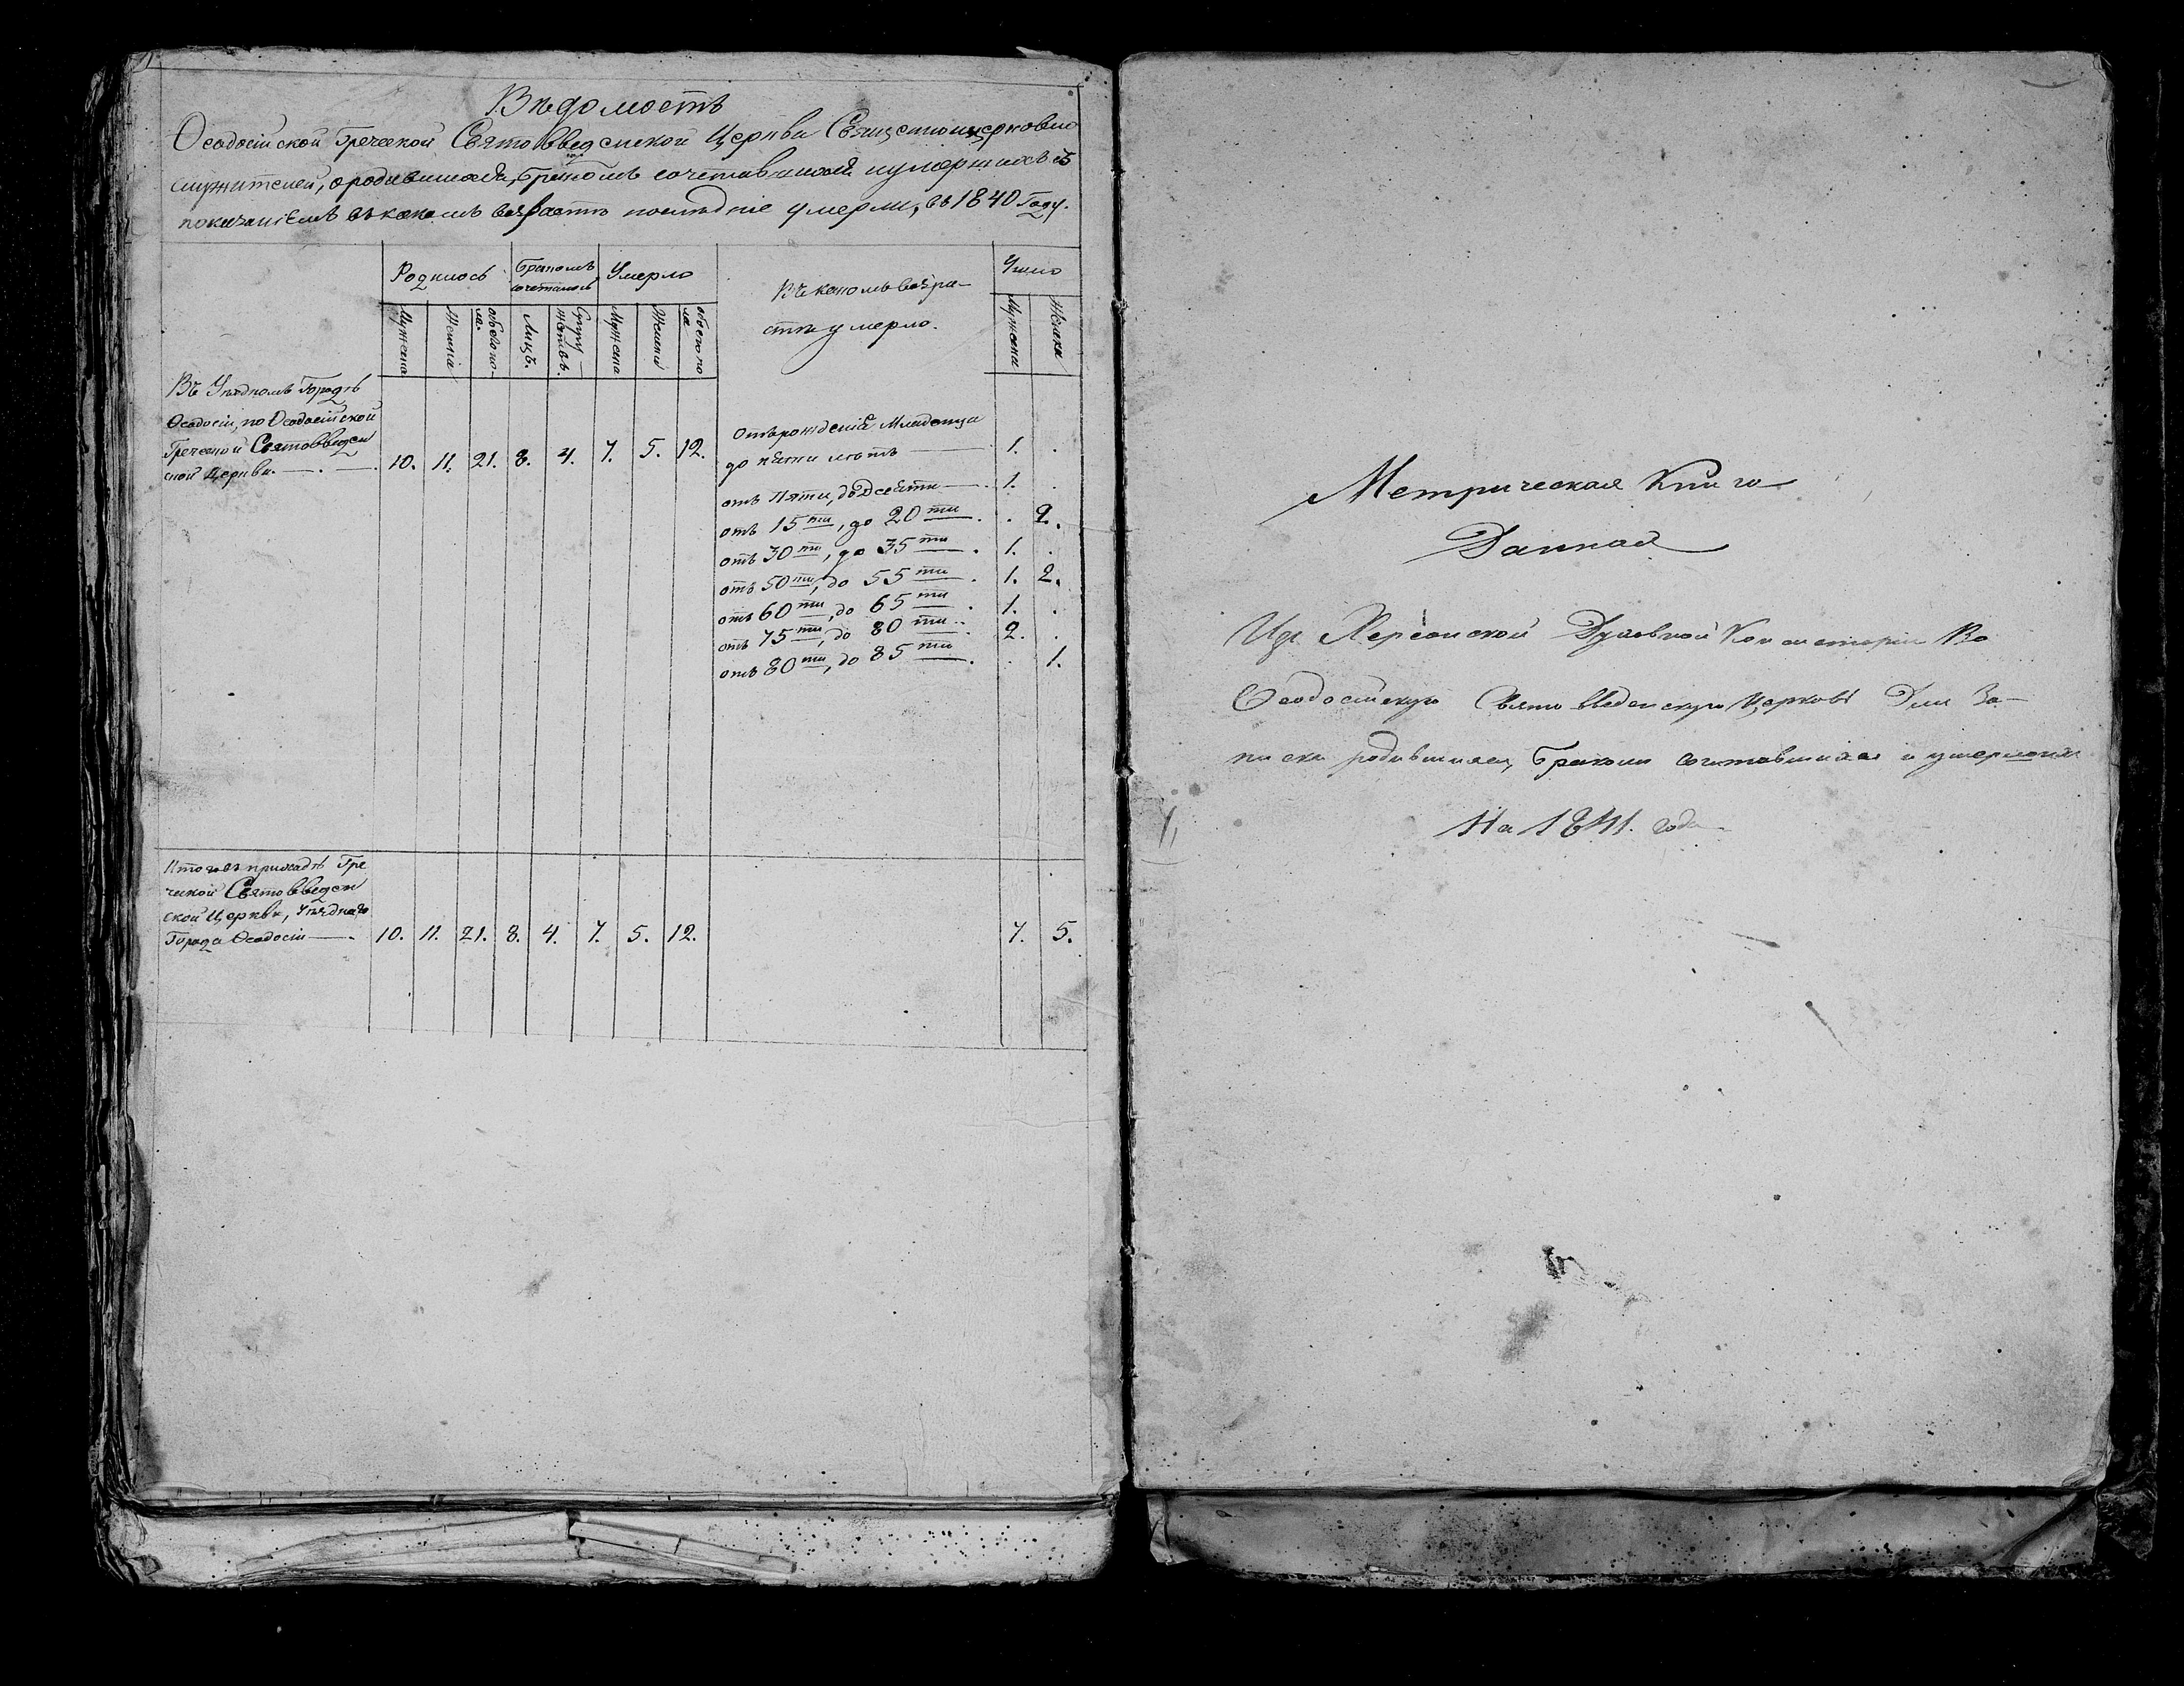 Вѣдомость
Ѳеодосійской Греческой Святовведенской Церкви Священноицерковно
служителей, ородившихся, бракомъ сочетавшихся иумершихъ съ
показаніемъ въ какомъ возрастѣ послѣдніе умерли, въ 1840 Году.
Родилось
Бракомъ сочеталось
Умерло
Въ какомъ возра-
стѣ умерло.
Число
Мужеска
Женска
обоего по-
ла.
Лицъ.
Супру-
жествъ.
Мужеска
Женска
обоего по
ла
Мужеска
Женска
Въ Уѣздномъ Городѣ
Ѳеодосіи, по Ѳеодосійской
Греческой Святовведен
ской Церкви. 10. 11. 21. 8. 4. 7. 5. 12.
отърожденія Младенца
до пяти лѣтъ 1. .
отъ Пяти, до Десяти 1. .
отъ 15 ти, до 20 ти . 2.
отъ 30 ти, до 35 ти 1. .
отъ 50 ти, до 55 ти 1. 2.
отъ 60 ти, до 65 ти 1. .
отъ 75 ти, до 80 ти 2. .
отъ 80 ти, до 85 ти . 1.
Итого въ приходѣ Гре
ческой Святовведен
ской Церкви, Уѣзднаго
Города Ѳеодосіи 10. 11. 21. 8. 4. 7. 5. 12. 7. 5.
Метрическая Книга
Данная
Изъ Херсонской Духовной Консисторіи Во
Ѳеодосійскую Свято Введенскую Церковь Для За-
писки родившихся, бракомъ сочетавшихся и умершихъ
На 1841. годъ